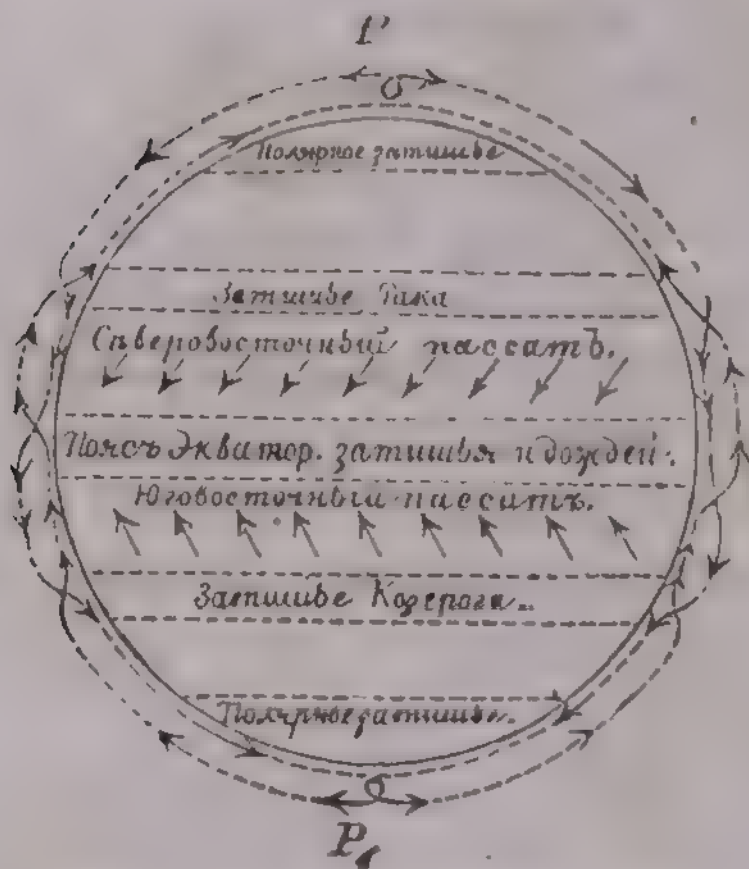 P
Полярное затишье
Затишье Рака
Сѣверовосточный пассатъ.
Поясъ Экватор. затишья и дождей.
Юговосточный пассатъ.
Затишье Козерога.
Полярное затишье.
P₁